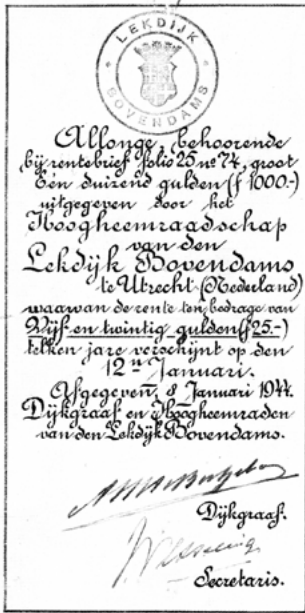 LEKDIJK
BOVENDAMS
Allonge, behoorende
bij rentebrief folio 25 no 74, groot
Eén duizend gulden (f 1000.-)
uitgegeven door het
Hoogheemraadschap
van den
Lekdijk Bovendams
te Utrecht (Nederland)
waarvan de rente ten bedrage van
Vijf en twintig gulden (f 25.-)
telken jare verschijnt op den
12n Januari.
Afgegeven, 8 Januari 1944.
Dijkgraaf en Hoogheemraden
van den Lekdijk Bovendams.
Dijkgraaf.
Secretaris.